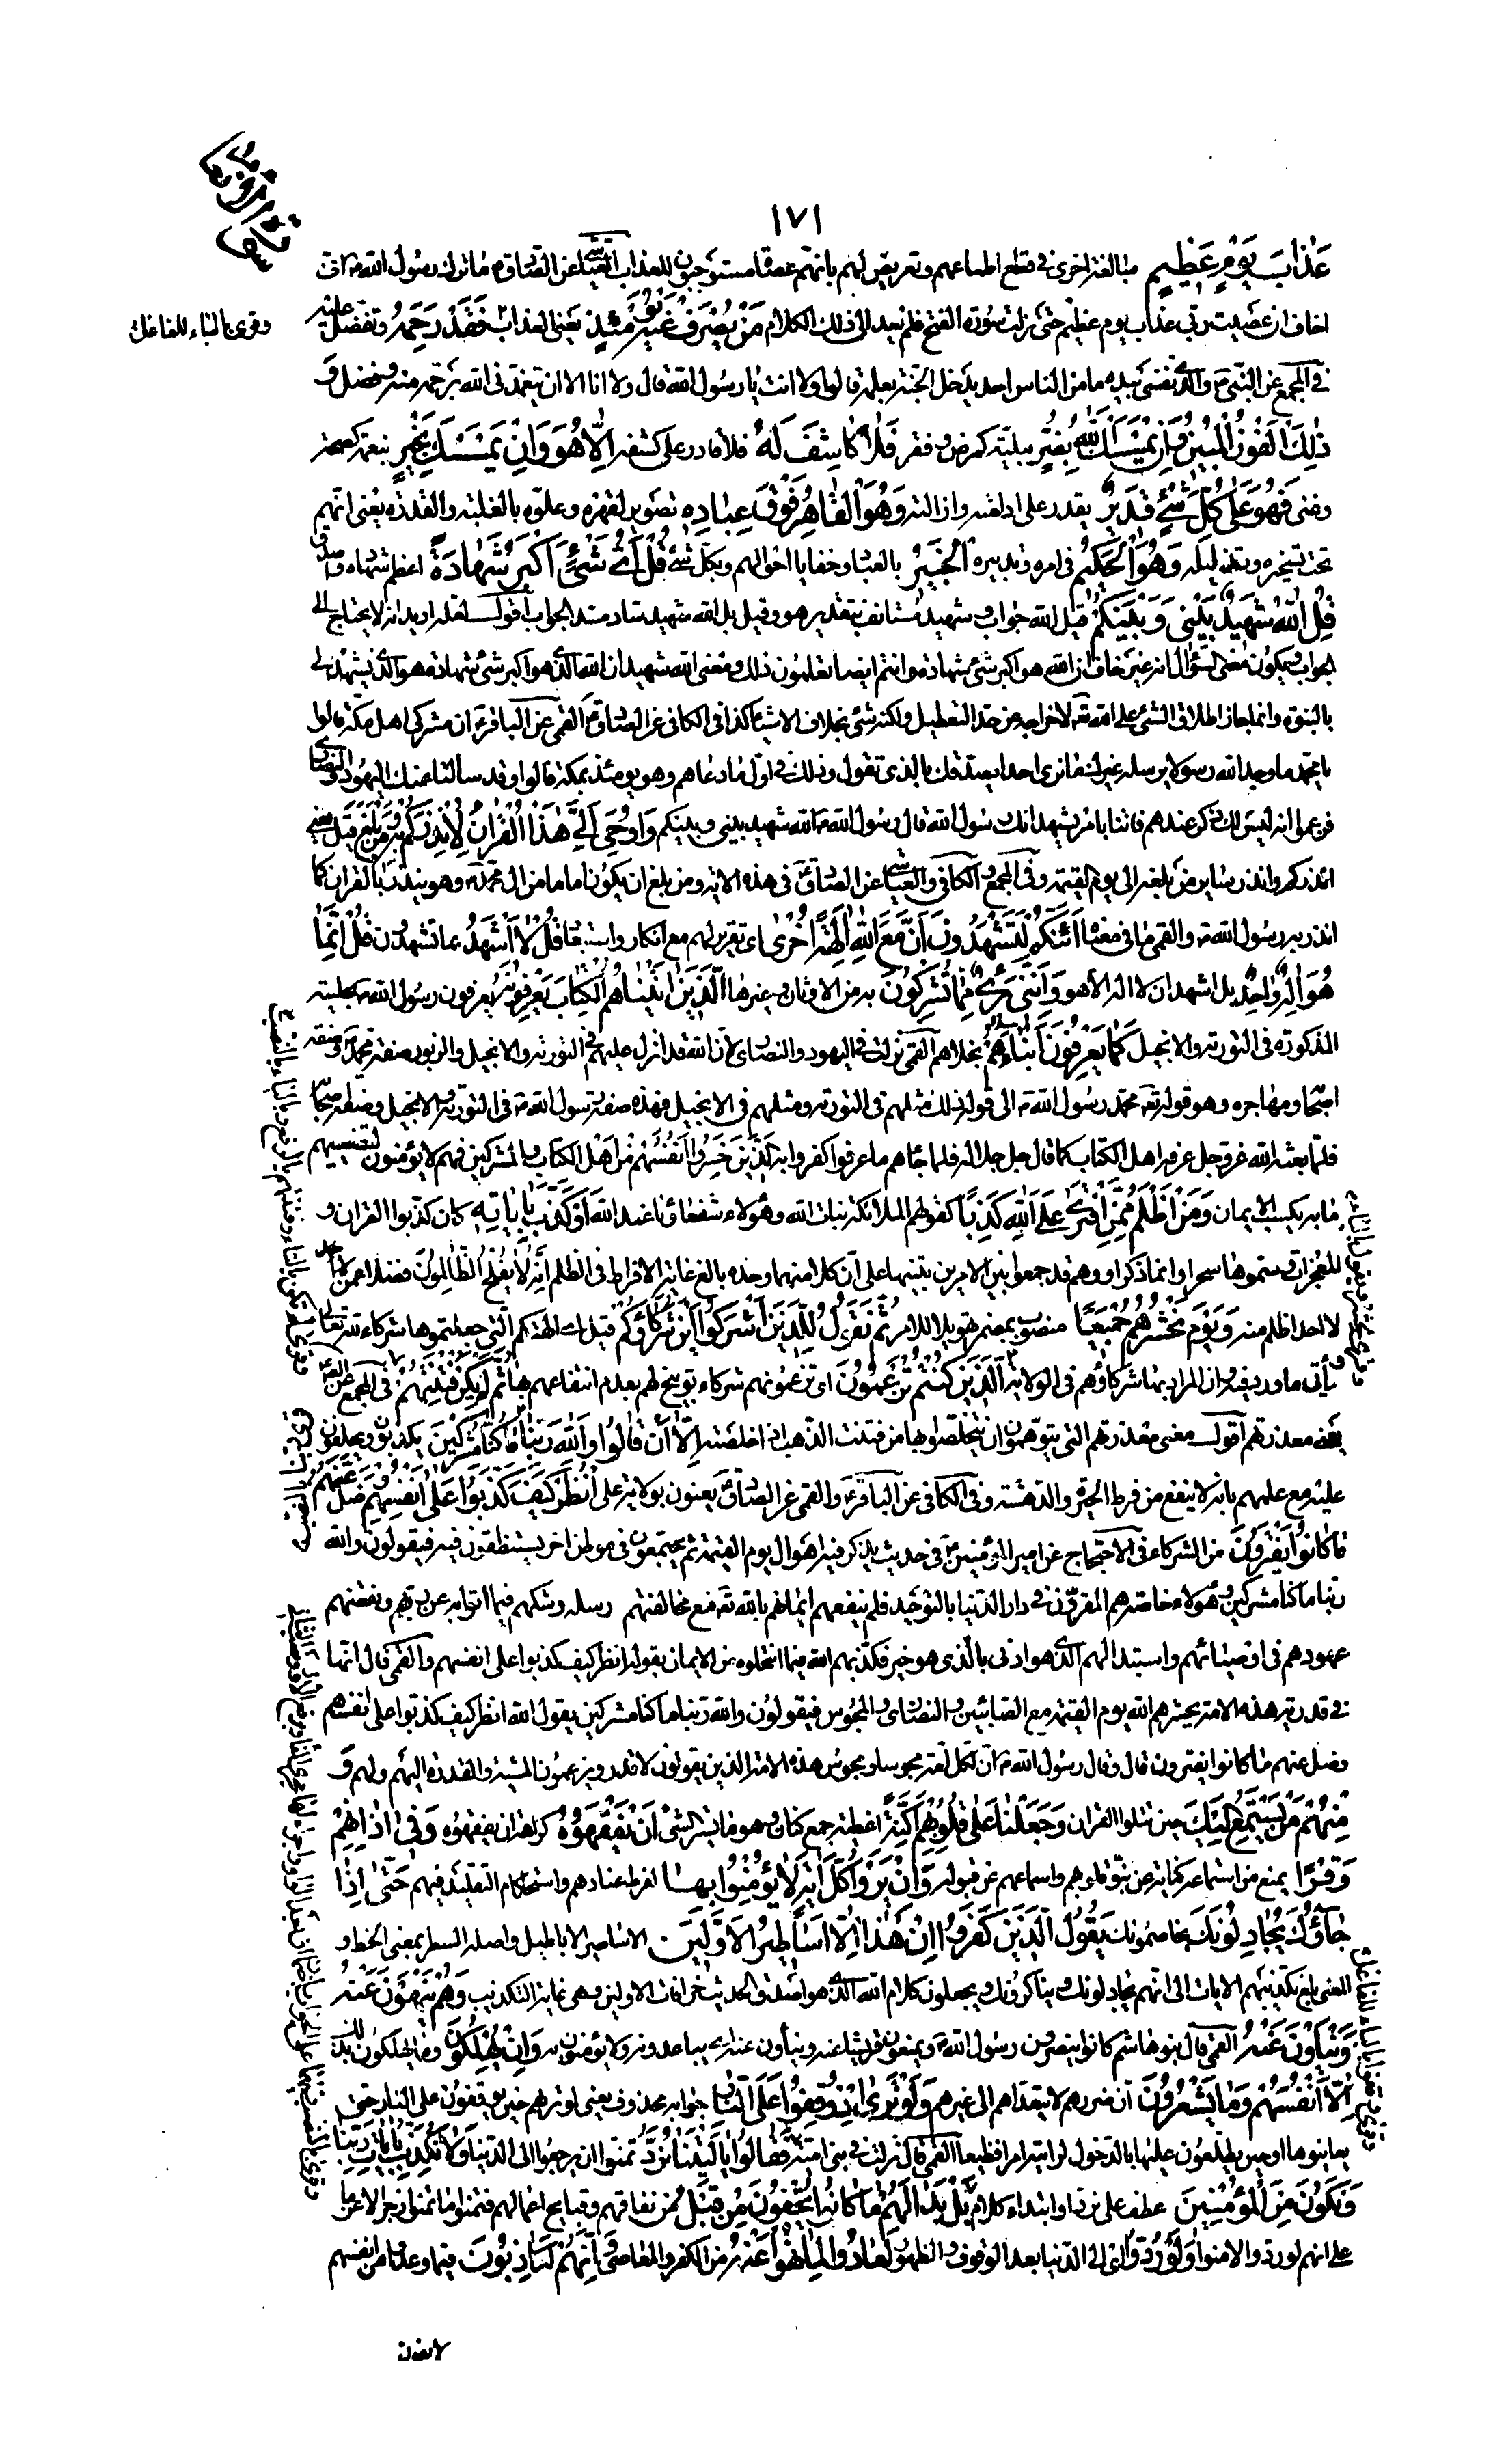 ١٧١
عَذابَ يَوْمٍ عَظِيمٍ مبالغة اخرى في قطع اطماعهم وتعريض لهم بانهم عصاة مستوجبون للعذاب العياشي عن الصادق ما ترك رسول الله ص انى
اخاف ان عصيت ربى عذاب يوم عظيم حتى نزلت سورة الفتح فلم يعد الى ذلك الكلام مَنْ يُصْرَفْ عَنْهُ يَوْمَئِذٍ يعنى العذاب فَقَدْ رَحِمَهُ وتفضل عليه
وقرئ بالبناء للفاعل
في المجمع عن النبي ص والذي نفسي بيده ما من الناس احد يدخل الجنة بعمله قالوا ولا انت يا رسول الله قال ولا انا الا ان يتغمدنى الله برحمة منه وفضل وَ
ذلِكَ الْفَوْزُ الْمُبِينُ وَإِنْ يَمْسَسْكَ اللهُ بِضُرٍّ ببلية كمرض وفقر فَلا كاشِفَ لَهُ فلا قادر على كشفه إِلَّا هُوَ وَإِنْ يَمْسَسْكَ بِخَيْرٍ بنعمة كصحة
وغنى فَهُوَ عَلى كُلِّ شَيْءٍ قَدِيرٌ يقدر على ادامته وازالته وَهُوَ الْقاهِرُ فَوْقَ عِبادِهِ تصوير لقهره وعلوه بالغلبة والقدرة يعنى انهم
تحت تسخيره وتذليله وَهُوَ الْحَكِيمُ في امره وتدبيره الْخَبِيرُ بالعباد وخفايا احوالهم وبكل شئ قُلْ أَيُّ شَيْءٍ أَكْبَرُ شَهادَةً اعظم شهادة واصدق
قُلِ اللهُ شَهِيدٌ بَيْنِي وَبَيْنَكُمْ قيل الله جواب وشهيد مستانف بتقدير هو وقيل بل الله شهيد ساد مسد الجواب اقول لعله اريد انه لا يحتاج الى
الجواب ويكون معنى السؤال انه غير خاف ان الله هو اكبر شئ شهادة وانتم ايضا تعلمون ذلك ومعنى الله شهيد ان الله الذى هو اكبر شئ شهادة هو الذى يشهد لى
بالنبوة وانما جاز اطلاق الشئ على الله تعه لاخراجه عن حد التعطيل ولكنه شئ بخلاف الاشياء كذا في الكافي عن الصادق ع القمى عن الباقر ع ان مشركى اهل مكة قالوا
يا محمد ما وجد الله رسولا يرسله غيرك ما نرى احدا يصدقك بالذى تقول وذلك في اول ما دعاهم وهو يومئذ بمكة قالوا وقد سألنا عنك اليهود والنصارى
فزعموا انه ليس لك ذكر عندهم فاتنا بامر يشهد انك رسول الله قال رسول الله ص الله شهيد بيني وبينكم وَأُوحِيَ إِلَيَّ هذَا الْقُرْآنُ لِأُنْذِرَكُمْ بِهِ وَمَنْ بَلَغَ قيل يعنى
انذركم وانذر سائر من بلغه الى يوم القيمة وفي المجمع والكافي والعياشي عن الصادق ع في هذه الاية ومن بلغ ان يكون اماما من ال محمد فهو ينذر بالقران كما
انذر به رسول الله ص والقمى ما في معناه أَإِنَّكُمْ لَتَشْهَدُونَ أَنَّ مَعَ اللهِ آلِهَةً أُخْرى اى تقرير لهم مع انكار واستبعاد قُلْ لا أَشْهَدُ بما تشهدون قُلْ إِنَّما
هُوَ إِلهٌ واحِدٌ بل اشهد ان لا اله الا هو وَإِنَّنِي بَرِيءٌ مِمَّا تُشْرِكُونَ به من الاوثان وغيرها الَّذِينَ آتَيْناهُمُ الْكِتابَ يَعْرِفُونَهُ يعرفون رسول الله ص بحليته
المذكورة في التورية والانجيل كَما يَعْرِفُونَ أَبْناءَهُمُ بحلاهم القمى نزلت في اليهود والنصارى لان الله قد انزل عليهم في التورية والانجيل والزبور صفة محمد ص وصفة
اصحابه ومهاجره وهو قوله تعه محمد رسول الله ص الى قوله ذلك مثلهم في التورية ومثلهم في الانجيل فهذه صفة رسول الله ص في التورية والانجيل وصفة اصحابه
فلما بعثه الله عز وجل عرفه اهل الكتاب كما قال جل جلاله فلما جاءهم ما عرفوا كفروا به الَّذِينَ خَسِرُوا أَنْفُسَهُمْ من اهل الكتاب والمشركين فهم لا يؤمنون لتضييعهم
ما به يكتسب الايمان وَمَنْ أَظْلَمُ مِمَّنِ افْتَرى عَلَى اللهِ كَذِباً كقولهم الملائكة بنات الله وهؤلاء شفعاؤنا عند الله أَوْ كَذَّبَ بِآياتِهِ كان كذبوا القران و
المعجزات وسموها سحرا وانما ذكر او وهم قد جمعوا بين الامرين تنبيها على ان كلا منهما وحده بالغ غاية الافراط في الظلم إِنَّهُ لا يُفْلِحُ الظَّالِمُونَ فضلا عمن لا احد
لا احد اظلم منه وَيَوْمَ نَحْشُرُهُمْ جَمِيعاً منصوب بمضمر تهويلا للامر ثُمَّ نَقُولُ لِلَّذِينَ أَشْرَكُوا أَيْنَ شُرَكاؤُكُمُ قيل اى الهتكم التى جعلتموها شركاء لله تعالى
ويأتى ما ورد فيه وان المراد بها شركاؤهم في الولاية الَّذِينَ كُنْتُمْ تَزْعُمُونَ اى تزعمونهم شركاء توبيخ لهم بعدم انتفاعهم بها ثُمَّ لَمْ تَكُنْ فِتْنَتُهُمْ في المجمع عن الصادق
يعنى معذرتهم اقول معنى معذرتهم التى يتوهمون ان يتخلصوا بها من فتنت الذهب اذا خلصته إِلَّا أَنْ قالُوا وَاللهِ رَبِّنا ما كُنَّا مُشْرِكِينَ يكذبون ويحلفون
عليه مع علمهم بانه لا ينفع من فرط الحيرة والدهشة وفي الكافي عن الباقر ع والقمى عن الصادق ع يعنون بولاية على انْظُرْ كَيْفَ كَذَبُوا عَلى أَنْفُسِهِمْ وَضَلَّ عَنْهُمْ
ما كانُوا يَفْتَرُونَ من الشركاء في الاحتجاج عن امير المؤمنين ع في حديث يذكر فيه اهوال يوم القيمة ثم يجتمعون في موطن اخر يستنطقون فيه فيقولون والله
ربنا ما كنا مشركين وهؤلاء خاصة هم المقرون في دار الدنيا بالتوحيد فلم ينفعهم ايمانهم بالله تعه مع مخالفتهم رسله وشكهم فيما اتوا به عن ربهم ونقضهم
عهودهم في اوصيائهم واستبدالهم الذى هو ادنى بالذى هو خير فكذبهم الله فيما انتحلوه من الايمان بقوله انظر كيف كذبوا على انفسهم والقمى قال انها
في قدرية هذه الامة يحشرهم الله يوم القيمة مع الصابئين والنصارى والمجوس فيقولون والله ربنا ما كنا مشركين يقول الله انظر كيف كذبوا على انفسهم
وضل عنهم ما كانوا يفترون قال وقال رسول الله ص ان لكل امة مجوسا ومجوس هذه الامة الذين يقولون لا قدر ويزعمون المشية والقدرة اليهم ولهم وَ
مِنْهُمْ مَنْ يَسْتَمِعُ إِلَيْكَ حين تتلوا القران وَجَعَلْنا عَلى قُلُوبِهِمْ أَكِنَّةً اغطية جمع كنان وهو ما يستر الشئ أَنْ يَفْقَهُوهُ كراهة ان يفقهوه وَفِي آذانِهِمْ
وَقْراً يمنع من استماعه كناية عن نبو قلوبهم واسماعهم عن قبوله وَإِنْ يَرَوْا كُلَّ آيَةٍ لا يُؤْمِنُوا بِها لفرط عنادهم واستحكام التقليد فيهم حَتَّى إِذا
جاؤُكَ يُجادِلُونَكَ يخاصمونك يَقُولُ الَّذِينَ كَفَرُوا إِنْ هذا إِلَّا أَساطِيرُ الْأَوَّلِينَ الاساطير الاباطيل واصله السطر بمعنى الخط و
المعنى بلغ تكذيبهم الايات الى انهم يجادلونك ويناكرونك ويجعلون كلام الله الذى هو اصدق الحديث خرافات الاولين وهى غاية التكذيب وَهُمْ يَنْهَوْنَ عَنْهُ
وَيَنْأَوْنَ عَنْهُ القمى قال بنو هاشم كانوا ينصرون رسول الله ص ويمنعون قريشا عنه وينأون عنه اى يباعدونه ولا يؤمنون به وَإِنْ يُهْلِكُونَ وما يهلكون بذلك
إِلَّا أَنْفُسَهُمْ وَما يَشْعُرُونَ ان ضررهم لا يتعداهم الى غيرهم وَلَوْ تَرى إِذْ وُقِفُوا عَلَى النَّارِ جوابه محذوف يعنى لو تريهم حين يوقفون على النار حتى
يعاينوها او حين يطلعون عليها بالدخول لرايت امرا فظيعا القمى قال نزلت في بنى امية فَقالُوا يا لَيْتَنا نُرَدُّ تمنوا ان يرجعوا الى الدنيا وَلا نُكَذِّبَ بِآياتِ رَبِّنا
وَنَكُونَ مِنَ الْمُؤْمِنِينَ عطف على نرد او ابتداء كلام بَلْ بَدا لَهُمْ ما كانُوا يُخْفُونَ مِنْ قَبْلُ من نفاقهم وقبايح اعمالهم فتمنوا ما تمنوا ضجرا لا عزما
على انهم لو ردوا لامنوا وَلَوْ رُدُّوا اى الى الدنيا بعد الوقوف والظهور لَعادُوا لِما نُهُوا عَنْهُ من الكفر والمعاصى وَإِنَّهُمْ لَكاذِبُونَ فيما وعدوا من انفسهم